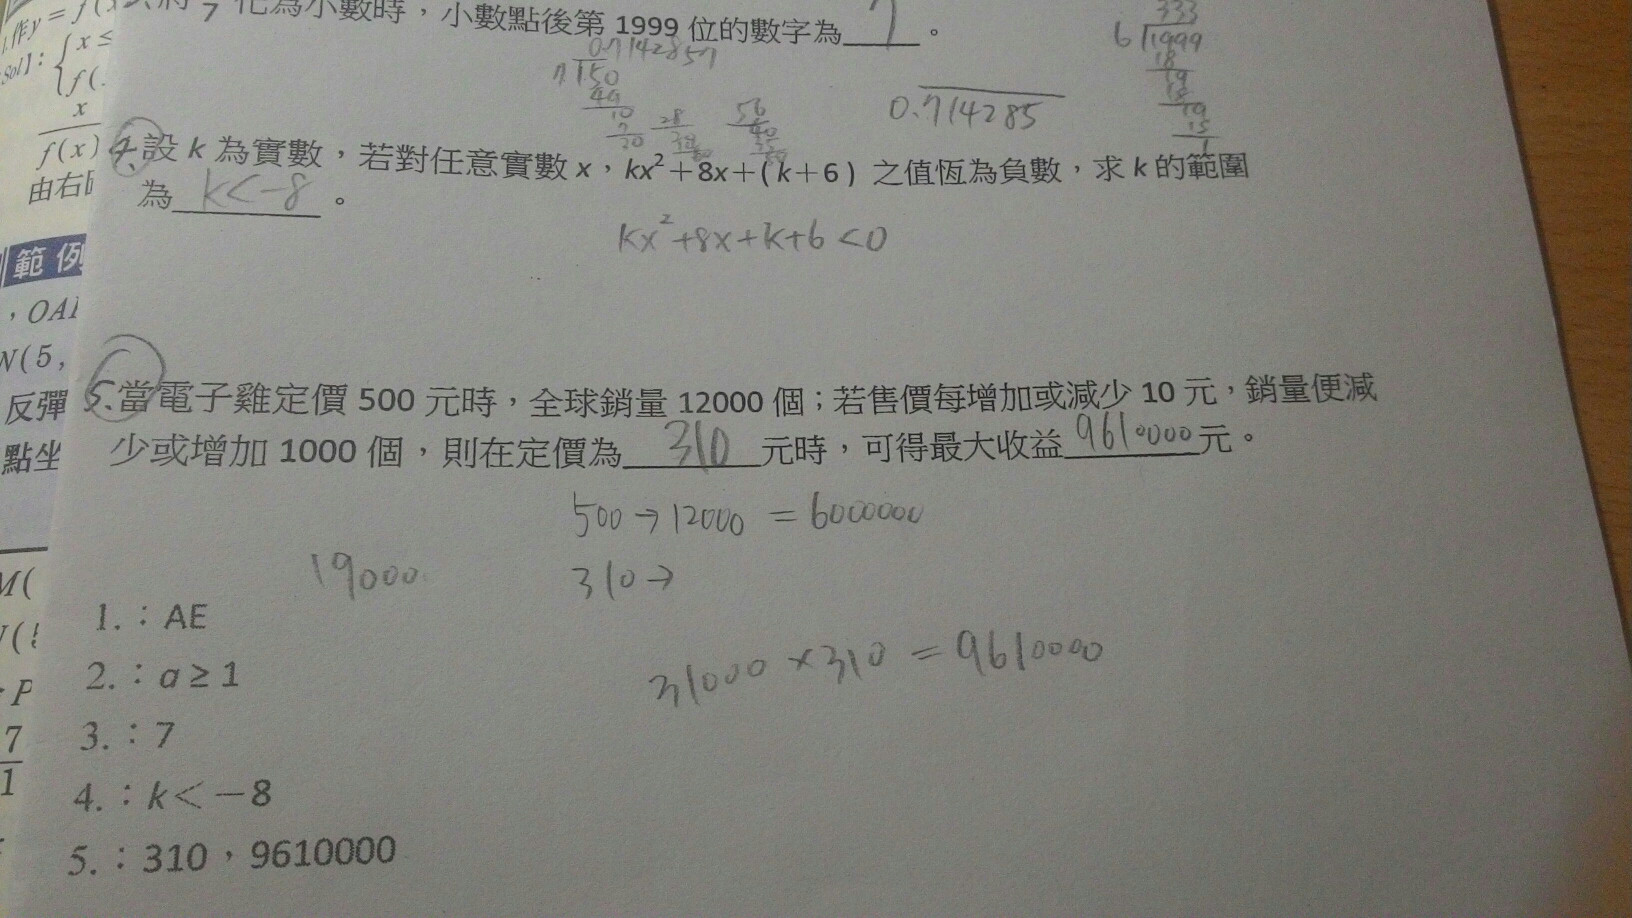 化為小數時，小數點後第 1999 位的數字為 7 。
0.7142857
0.714285
333
6 1999
4.設 k 為實數，若對任意實數 x，kx²＋8x＋(k＋6) 之值恆為負數，求 k 的範圍
為 k<-8 。
kx²+8x+k+6<0
5.當電子雞定價 500 元時，全球銷量 12000 個；若售價每增加或減少 10 元，銷量便減
少或增加 1000 個，則在定價為 310 元時，可得最大收益 9610000 元。
500→12000 = 6000000
19000
310→
31000×310=9610000
1.：AE
2.：a≥1
3.：7
4.：k＜－8
5.：310，9610000
f(x)
由右
範例
，OA
N(5,
反彈
點坐
M(
P
7
1